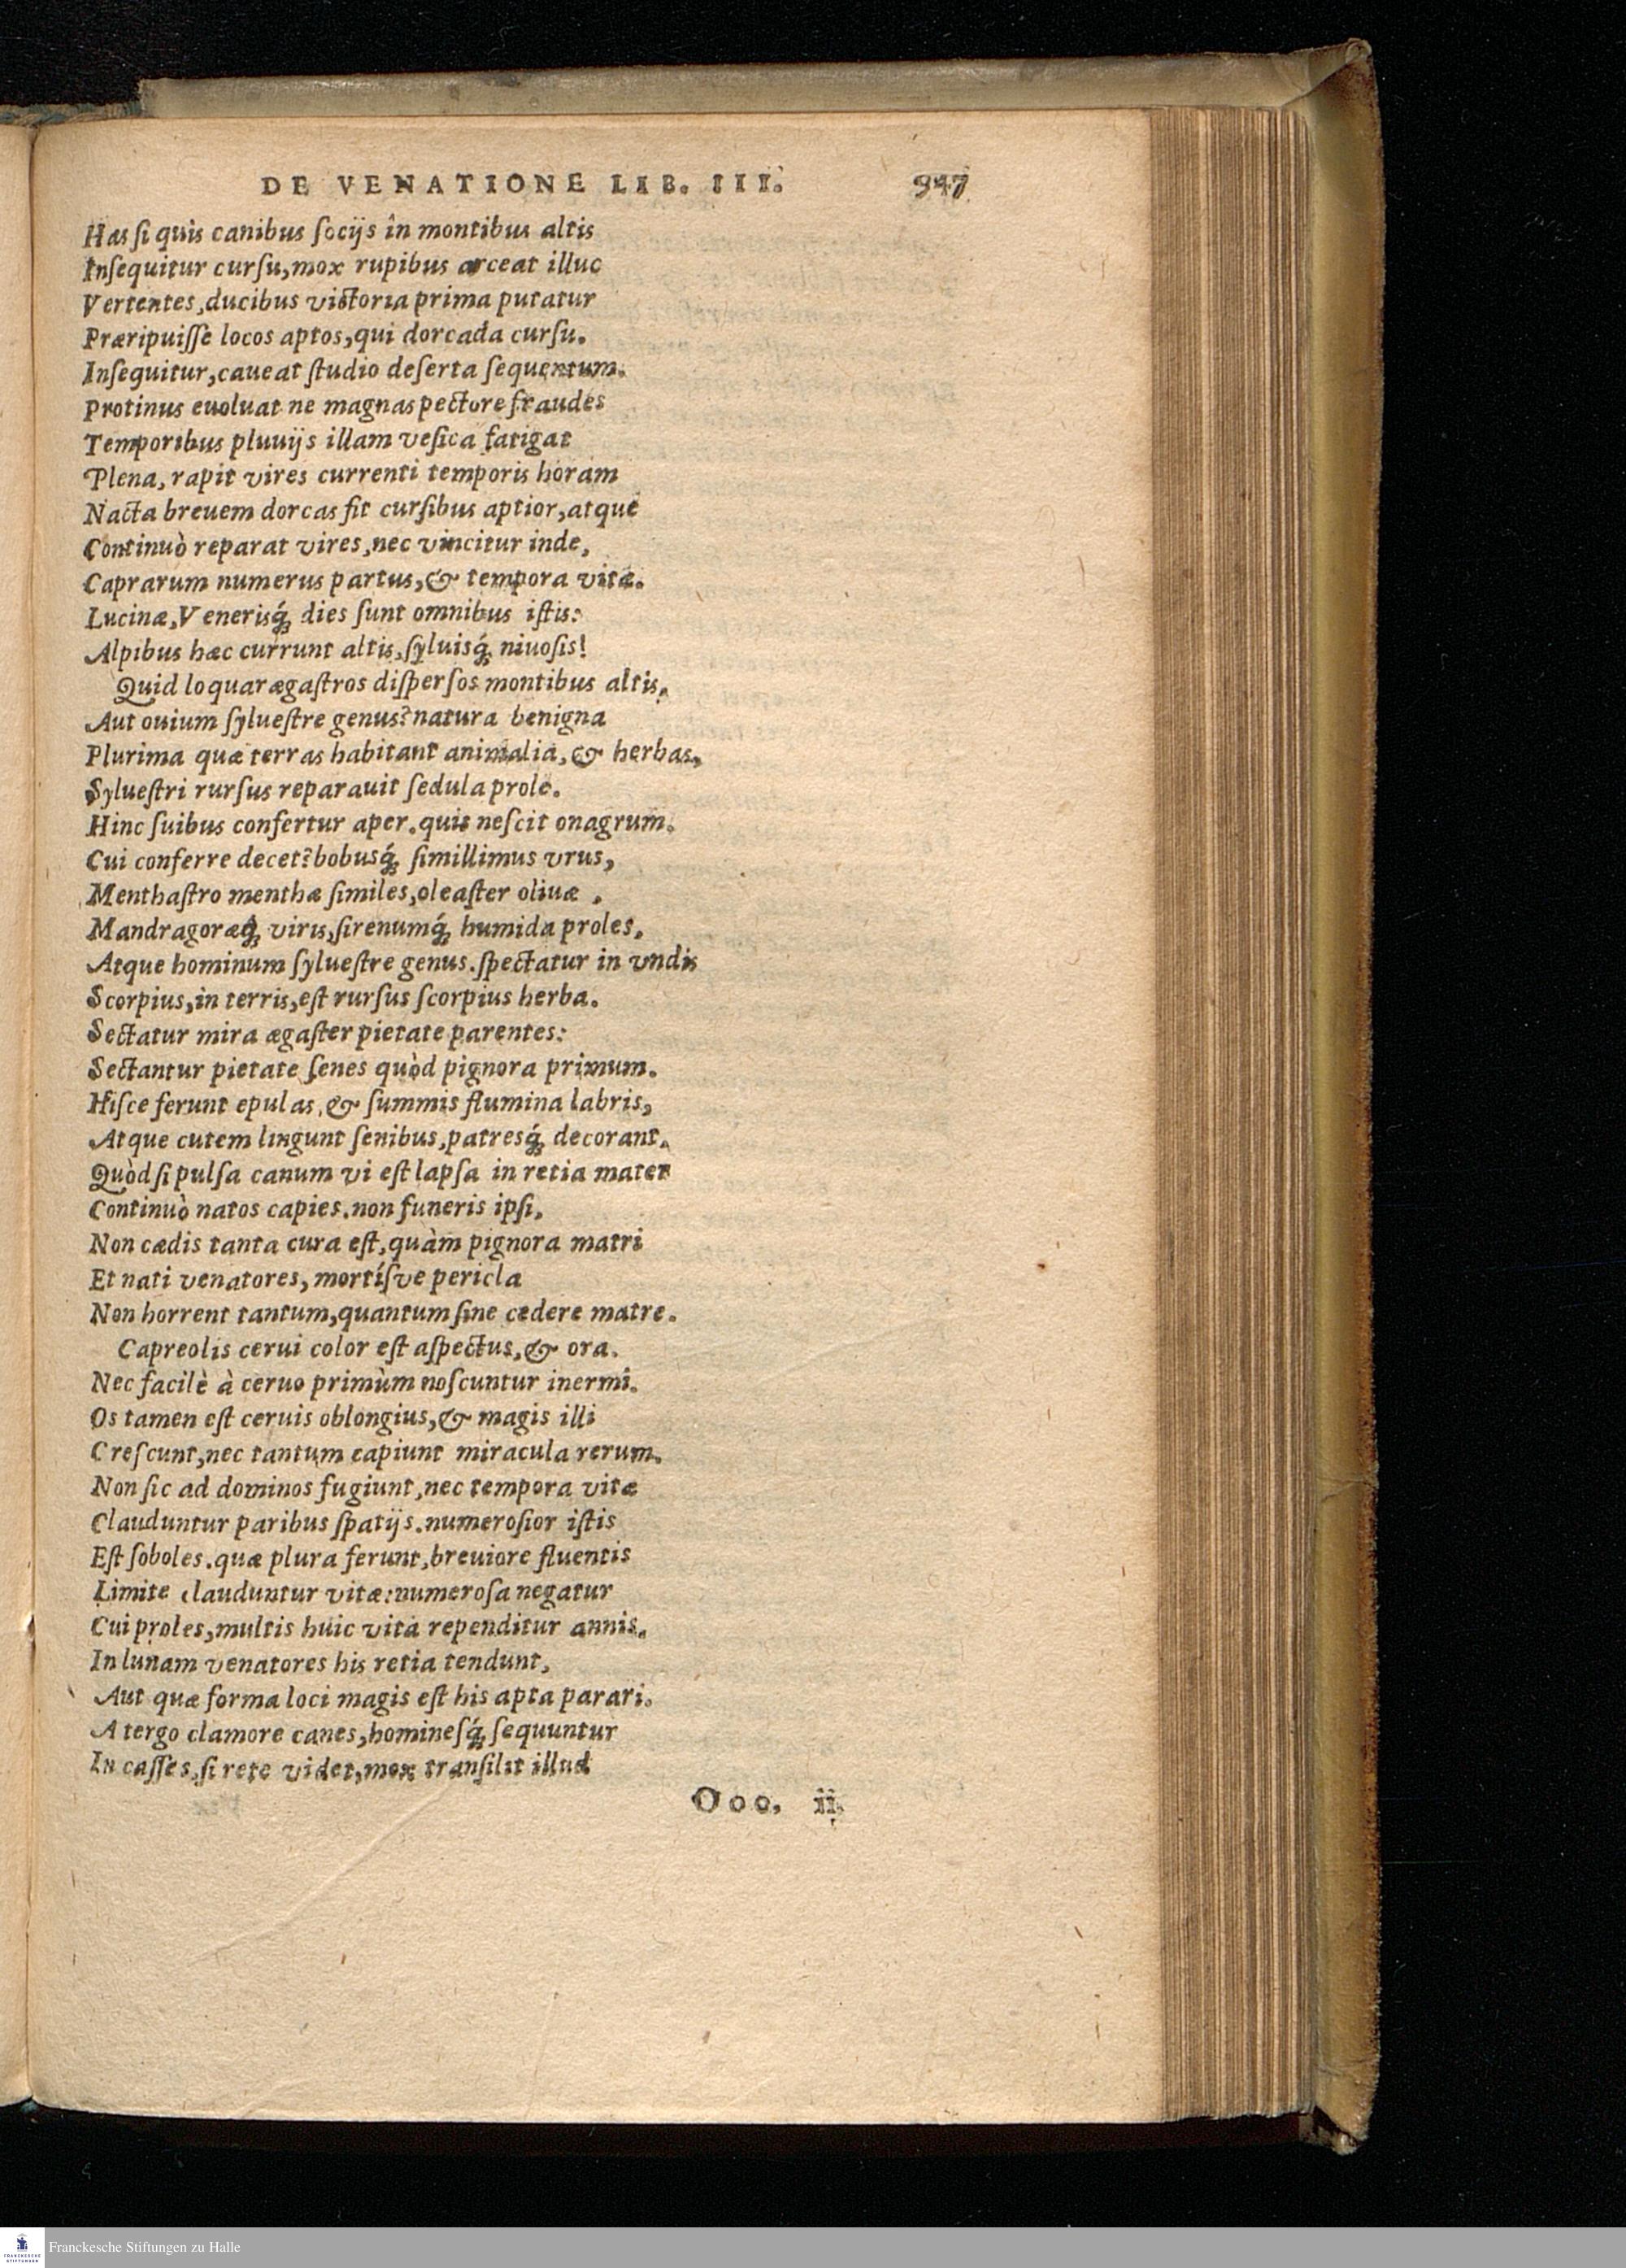 DE VENATIONE LIB. III. 947
Has ſi quis canibus ſocijs in montibus altis
Inſequitur curſu, mox rupibus arceat illuc
Vertentes, ducibus victoria prima putatur
Præripuiſſe locos aptos, qui dorcada curſu.
Inſequitur, caueat ſtudio deſerta ſequentum.
Protinus euoluat ne magnas pectore fraudes
Temporibus pluuijs illam veſica fatigat
Plena, rapit vires currenti temporis horam
Nacta breuem dorcas fit curſibus aptior, atque
Continuò reparat vires, nec vincitur inde,
Caprarum numerus partus, & tempora vitæ.
Lucinæ, Venerisq́; dies ſunt omnibus iſtis:
Alpibus hæc currunt altis, ſyluisq́; niuoſis!
Quid loquar ægaſtros diſperſos montibus altis,
Aut ouium ſylueſtre genus? natura benigna
Plurima quæ terras habitant animalia, & herbas,
Sylueſtri rurſus reparauit ſedula prole.
Hinc ſuibus confertur aper. quis neſcit onagrum.
Cui conferre decet? bobusq́; ſimillimus vrus,
Menthaſtro menthæ ſimiles, oleaſter oliuæ,
Mandragoræq́; viris, ſirenumq́; humida proles,
Atque hominum ſylueſtre genus. ſpectatur in vndis
Scorpius, in terris, eſt rurſus ſcorpius herba.
Sectatur mira ægaſter pietate parentes:
Sectantur pietate ſenes quòd pignora primum.
Hiſce ferunt epulas, & ſummis flumina labris,
Atque cutem lingunt ſenibus, patresq́; decorant.
Quòd ſi pulſa canum vi eſt lapſa in retia mater
Continuò natos capies. non funeris ipſi,
Non cædis tanta cura eſt, quàm pignora matri
Et nati venatores, mortíſve pericla
Non horrent tantum, quantum ſine cedere matre.
Capreolis cerui color eſt aſpectus, & ora.
Nec facilè à ceruo primùm noſcuntur inermi.
Os tamen eſt ceruis oblongius, & magis illi
Creſcunt, nec tantum capiunt miracula rerum.
Non ſic ad dominos fugiunt, nec tempora vitæ
Clauduntur paribus ſpatijs. numeroſior iſtis
Eſt ſoboles. quæ plura ferunt, breuiore fluentis
Limite clauduntur vitæ: numeroſa negatur
Cui proles, multis huic vita rependitur annis.
In lunam venatores his retia tendunt,
Aut quæ forma loci magis eſt his apta parari.
A tergo clamore canes, homineſq́; ſequuntur
In caſſes, ſi rete videt, mox tranſilit illud
Ooo, ii
Franckesche Stiftungen zu Halle
FRANCKESCHE
STIFTUNGEN